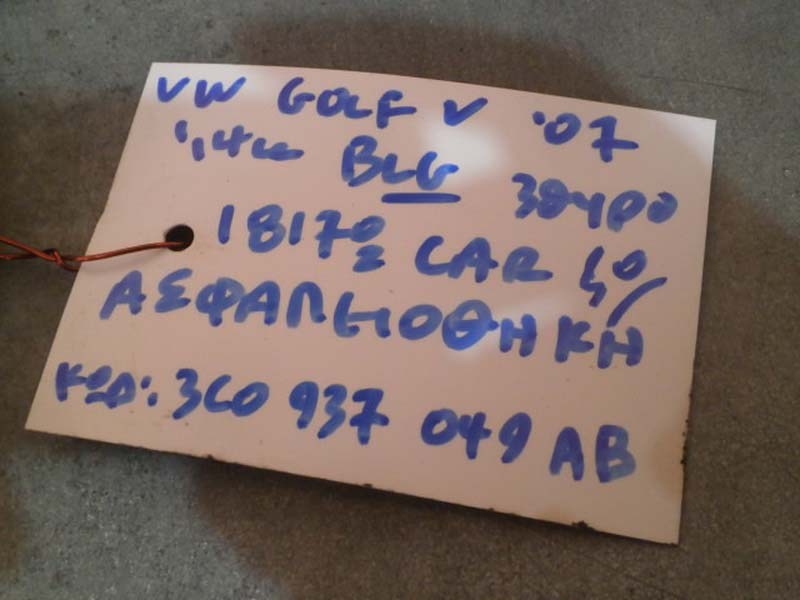 VW GOLF V '07
1,4cc BLG 3θυρο
18170Σ CAR
ΑΣΦΑΛΕΙΟΘΗΚΗ
ΚΩΔ: 3C0 937 049 AB